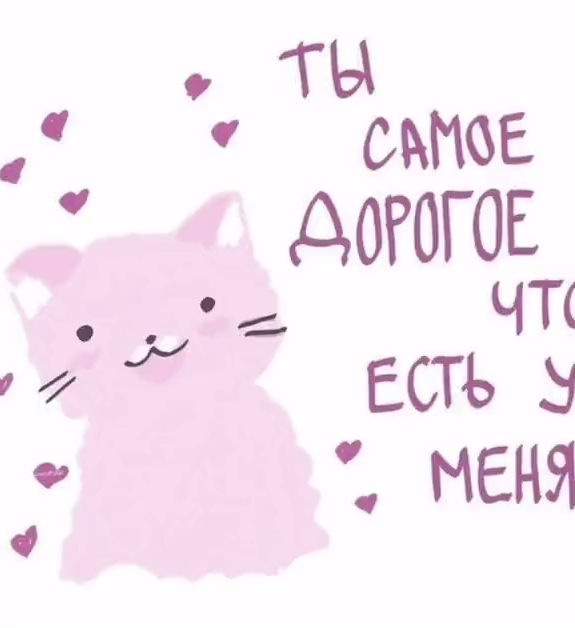 ТЫ
САМОЕ
ДОРОГОЕ
ЧТО
ЕСТЬ У
МЕНЯ